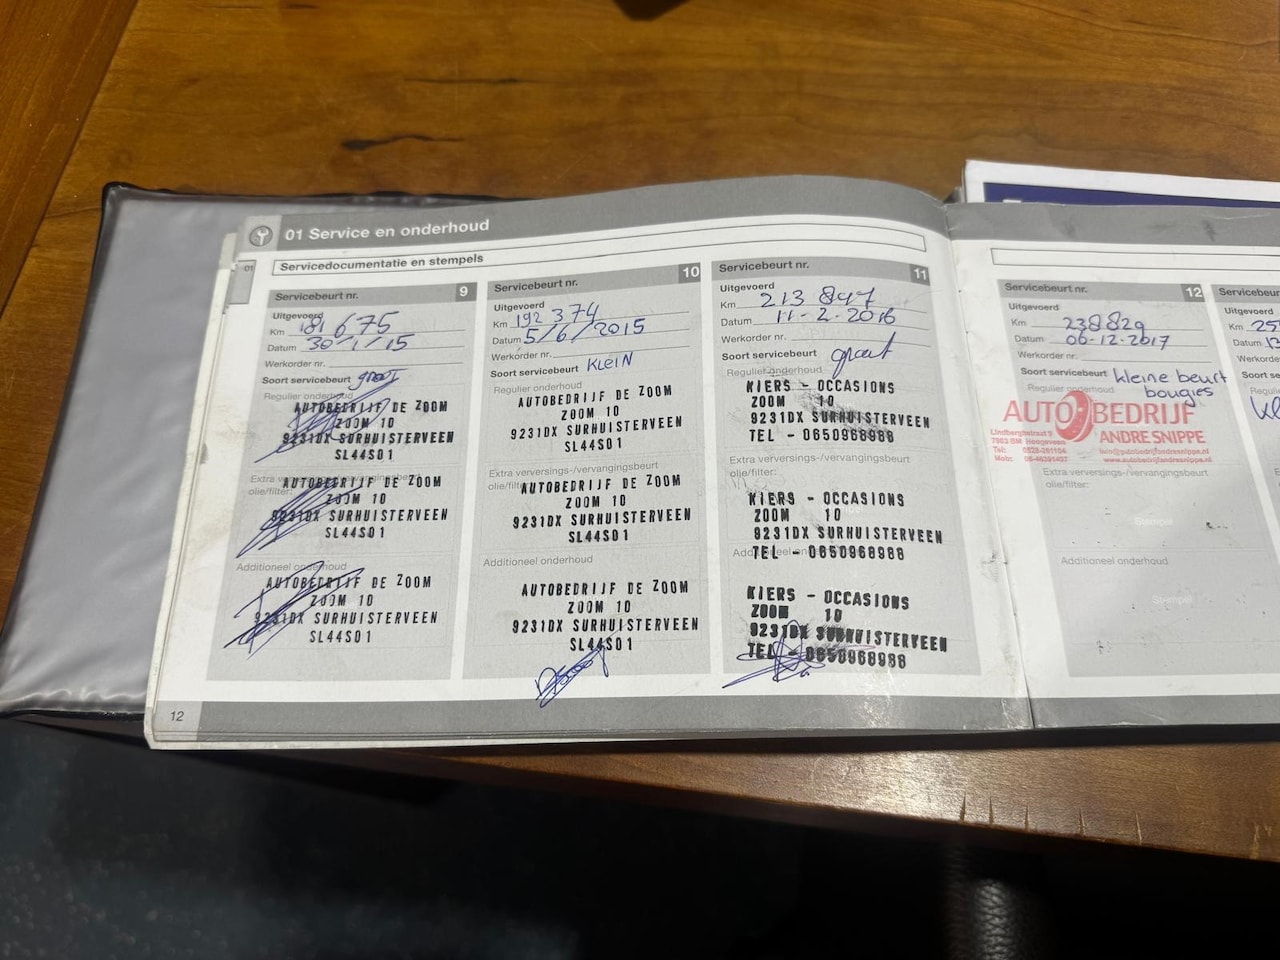 01 Service en onderhoud
01
Servicedocumentatie en stempels
Servicebeurt nr. 9
Uitgevoerd
Km 181 675
Datum 30/1/15
Werkorder nr.
Soort servicebeurt groot
Regulier onderhoud
AUTOBEDRIJF DE ZOOM
ZOOM 10
9231DX SURHUISTERVEEN
SL44S01
Extra verversings-/vervangingsbeurt
olie/filter:
AUTOBEDRIJF DE ZOOM
ZOOM 10
9231DX SURHUISTERVEEN
SL44S01
Additioneel onderhoud
AUTOBEDRIJF DE ZOOM
ZOOM 10
9231DX SURHUISTERVEEN
SL44S01
Servicebeurt nr. 10
Uitgevoerd
Km 192 374
Datum 5/6/2015
Werkorder nr.
Soort servicebeurt KLEIN
Regulier onderhoud
AUTOBEDRIJF DE ZOOM
ZOOM 10
9231DX SURHUISTERVEEN
SL44S01
Extra verversings-/vervangingsbeurt
olie/filter:
AUTOBEDRIJF DE ZOOM
ZOOM 10
9231DX SURHUISTERVEEN
SL44S01
Additioneel onderhoud
AUTOBEDRIJF DE ZOOM
ZOOM 10
9231DX SURHUISTERVEEN
SL44S01
Servicebeurt nr. 11
Uitgevoerd
Km 213 847
Datum 11-2-2016
Werkorder nr.
Soort servicebeurt groot
Regulier onderhoud
KIERS - OCCASIONS
ZOOM 10
9231DX SURHUISTERVEEN
TEL - 0650968988
Extra verversings-/vervangingsbeurt
olie/filter:
KIERS - OCCASIONS
ZOOM 10
9231DX SURHUISTERVEEN
Additioneel onderhoud
TEL - 0650968988
KIERS - OCCASIONS
ZOOM 10
9231DX SURHUISTERVEEN
TEL - 0650968988
12
Servicebeurt nr. 12
Uitgevoerd
Km 238829
Datum 06-12-2017
Werkorder nr.
Soort servicebeurt kleine beurt
bougies
Regulier onderhoud
AUTOBEDRIJF
ANDRE SNIPPE
Extra verversings-/vervangingsbeurt
olie/filter:
Stempel
Additioneel onderhoud
Stempel
Uitgevoerd
Km
Datum